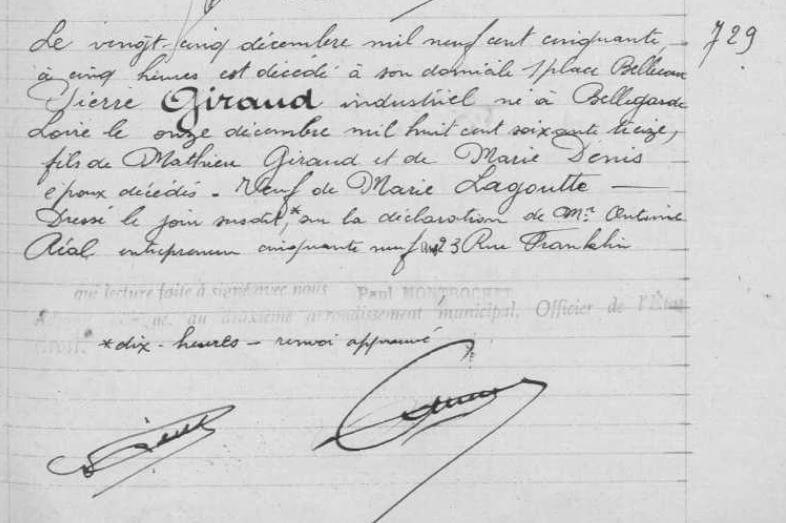 729
Le vingt-cinq décembre mil neuf cent cinquante,
à cinq heures est décédé à son domicile 1 place Bellecour
Pierre Giraud industriel né à Bellegarde
Loire le onze décembre mil huit cent soixante treize,
fils de Mathieu Giraud et de Marie Denis
époux décédés - Veuf de Marie Lagoutte —
Dressé le jour susdit,* sur la déclaration de Mr Antoine
Réal entrepreneur cinquante neuf ans 23 Rue Franklin
qui lecture faite à signé avec nous Paul MONTROCHET
au deuxième arrondissement municipal, Officier de l'État
*dix-heures - renvoi approuvé